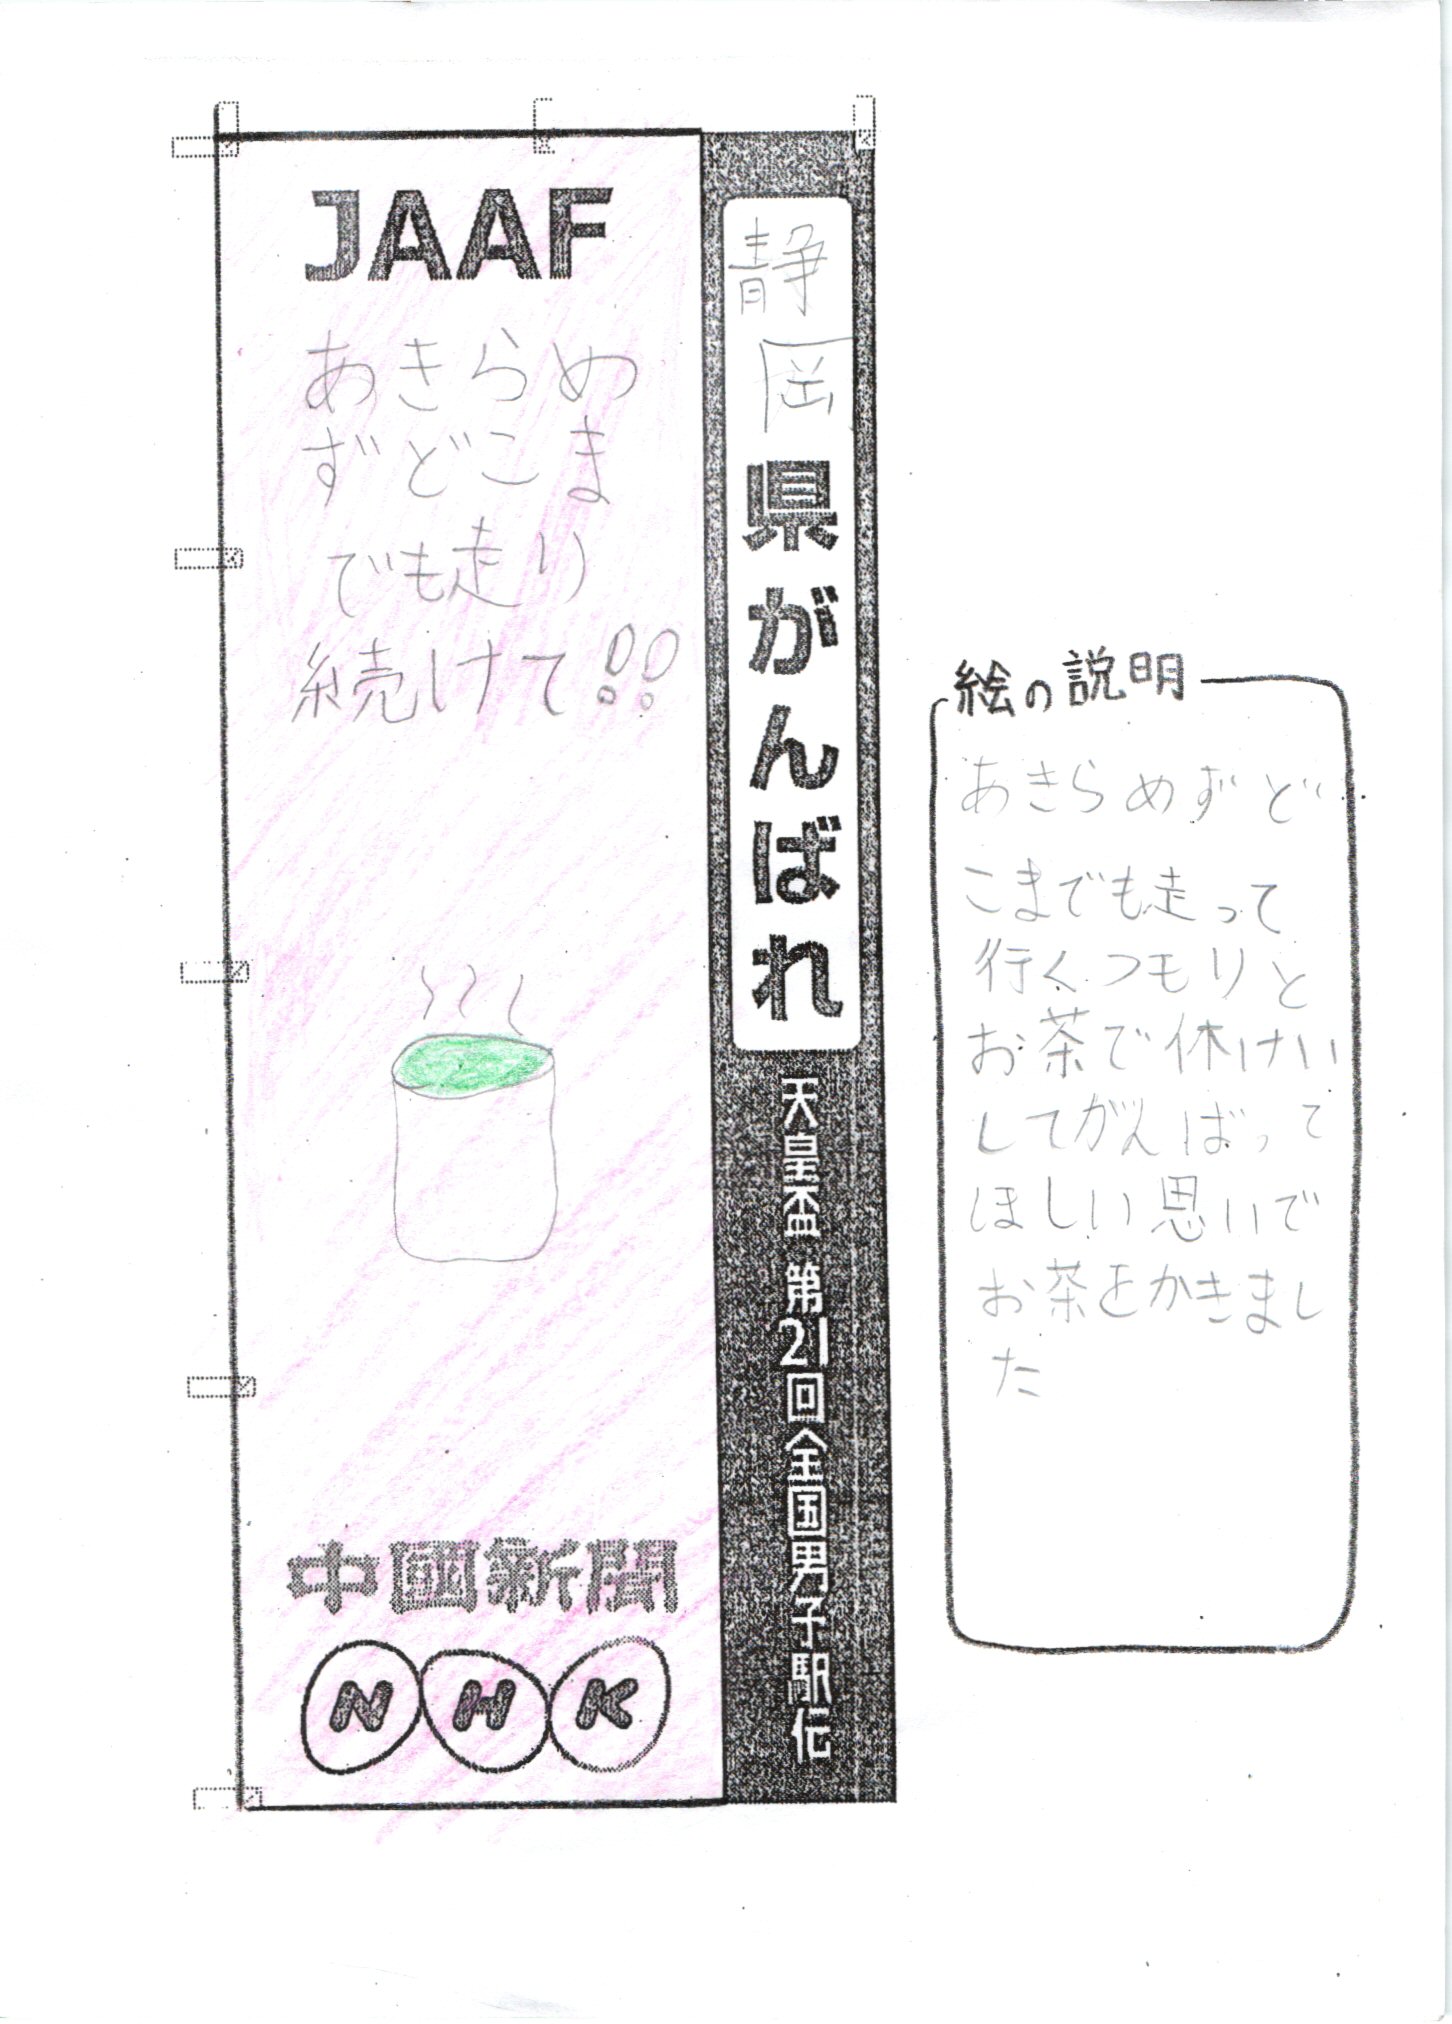 JAAF
あきらめ
ずどこま
でも走り
続けて!!
中國新聞
NHK
静岡県がんばれ
天皇盃 第21回全国男子駅伝
絵の説明
あきらめずど
こまでも走って
行くつもりと
お茶で休けい
してがんばって
ほしい思いで
お茶をかきまし
た